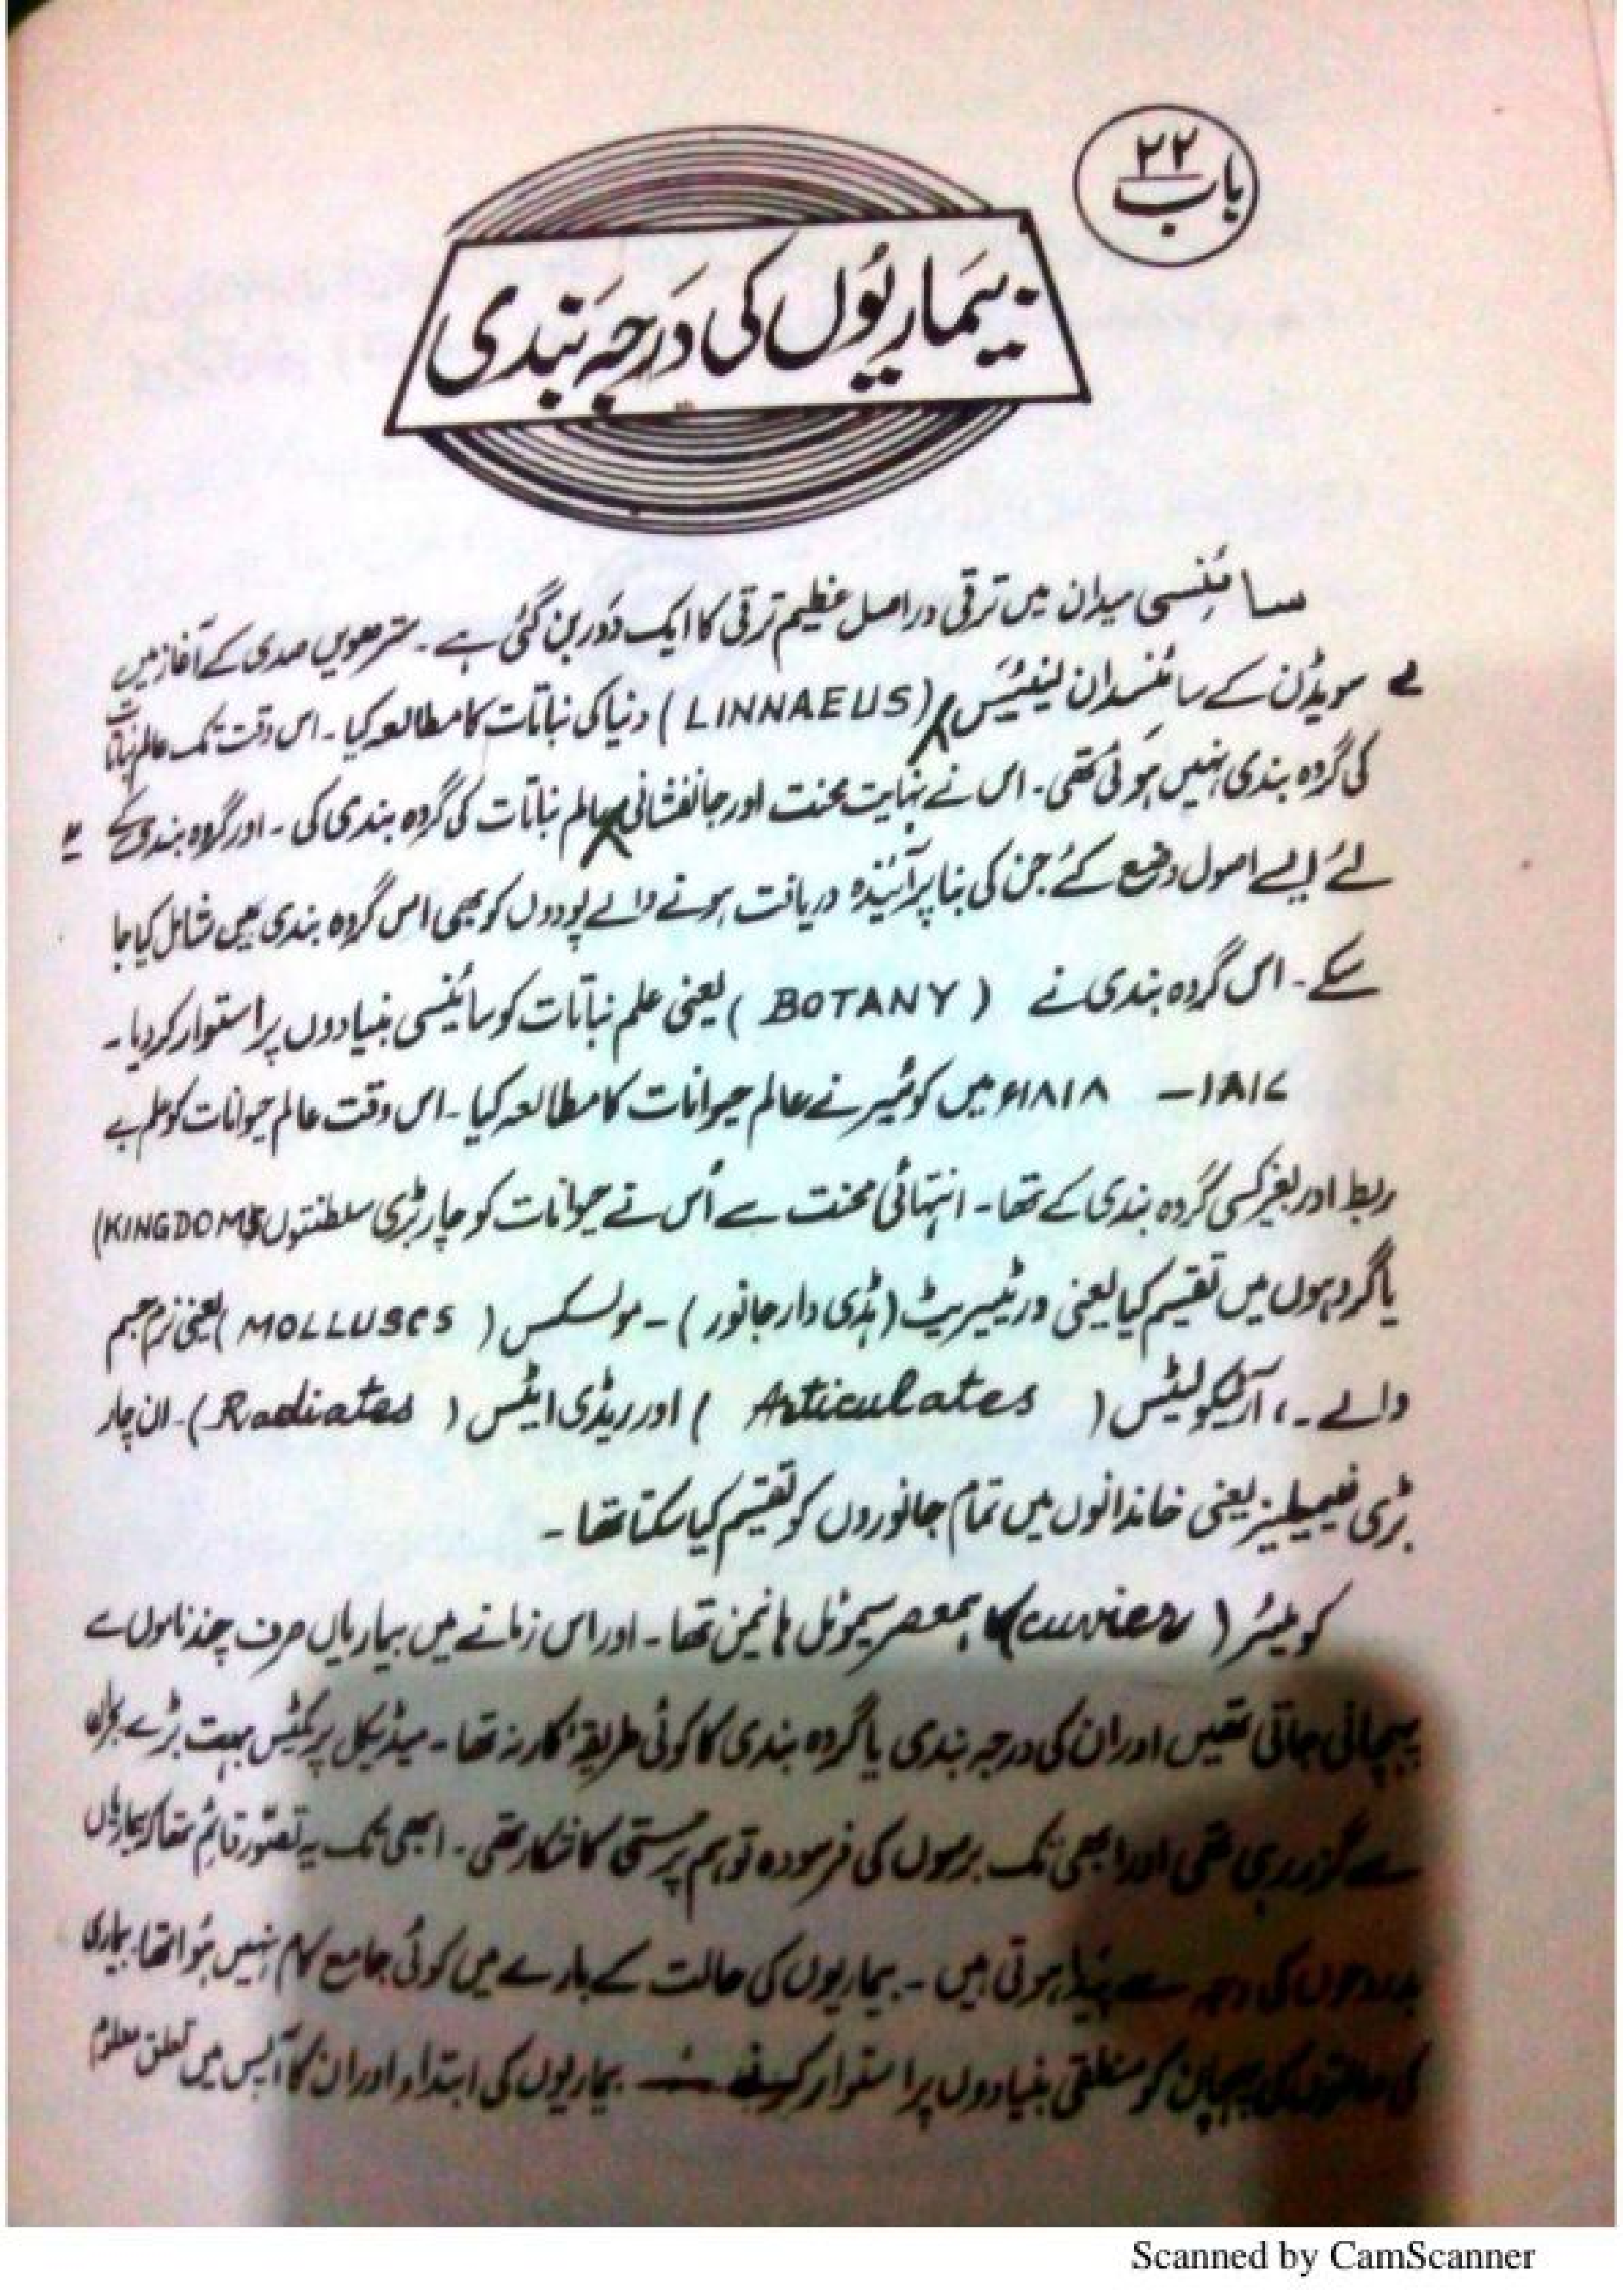 باب ۲۲
بیماریوں کی درجہ بندی
سائنسی میدان میں ترقی دراصل عظیم ترقی کا ایک دور بن گئی ہے۔ سترھویں صدی کے آغاز میں
سویڈن کے سائنسدان لینئیس (LINNAEUS) دنیا کی نباتات کا مطالعہ کیا۔ اس وقت تک عالم نباتات
کی گروہ بندی نہیں ہوئی تھی۔ اس نے نہایت محنت اور جانفشانی عالم نباتات کی گروہ بندی کی۔ اور گروہ بندی کے
لئے ایسے اصول وضع کئے جن کی بنا پر آئندہ دریافت ہونے والے پودوں کو بھی اس گروہ بندی میں شامل کیا جا
سکے۔ اس گروہ بندی نے (BOTANY) یعنی علم نباتات کو سائنسی بنیادوں پر استوار کر دیا۔
۱۸۱۷ – ۱۸۱۸ء میں کوئیر نے عالم حیوانات کا مطالعہ کیا۔ اس وقت عالم حیوانات کو علم بے
ربط اور بغیر کسی گروہ بندی کے تھا۔ انتہائی محنت سے اُس نے حیوانات کو چار بڑی سلطنتوں (KINGDOMS)
یا گروہوں میں تقسیم کیا یعنی ورٹیبریٹ (ہڈی دار جانور)۔ مولسکس (MOLLUSCS) یعنی نرم جسم
والے۔، آرٹیکولیٹس (Articulates) اور ریڈی ایٹس (Radiates)۔ ان چار
بڑی فیمیلیز یعنی خاندانوں میں تمام جانوروں کو تقسیم کیا سکتا تھا۔
کوئیر (Cuvier) کا ہمعصر سیموئل ہانیمن تھا۔ اور اس زمانے میں بیماریاں صرف چند ناموں سے
پہچانی جاتی تھیں اور ان کی درجہ بندی یا گروہ بندی کا کوئی طریقہ کار نہ تھا۔ میڈیکل پریکٹس بہت بڑے بحران
سے گزر رہی تھی اور ابھی تک برسوں کی فرسودہ توہم پرستی کا شکار تھی۔ ابھی تک یہ تصوّر قائم تھا کہ بیماریاں
بدروحوں کی وجہ سے پیدا ہوتی ہیں۔ بیماریوں کی حالت کے بارے میں کوئی جامع کام نہیں ہوا تھا۔ بیماری
کی علامتوں کی پہچان کو منطقی بنیادوں پر استوار کرنے بیماریوں کی ابتداء اور ان کا آپس میں تعلق معلوم
Scanned by CamScanner